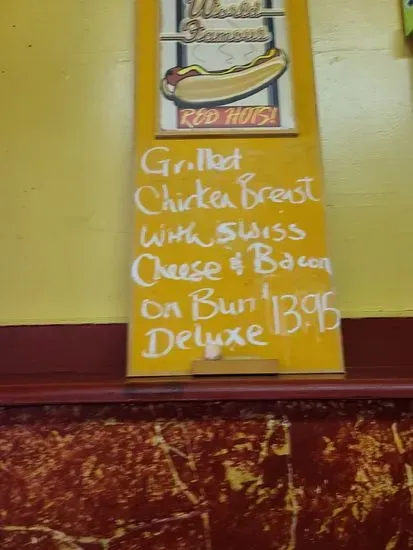 World
Famous
RED HOTS!
Grilled
Chicken Breast
with Swiss
Cheese & Bacon
on Bun $13.95
Deluxe